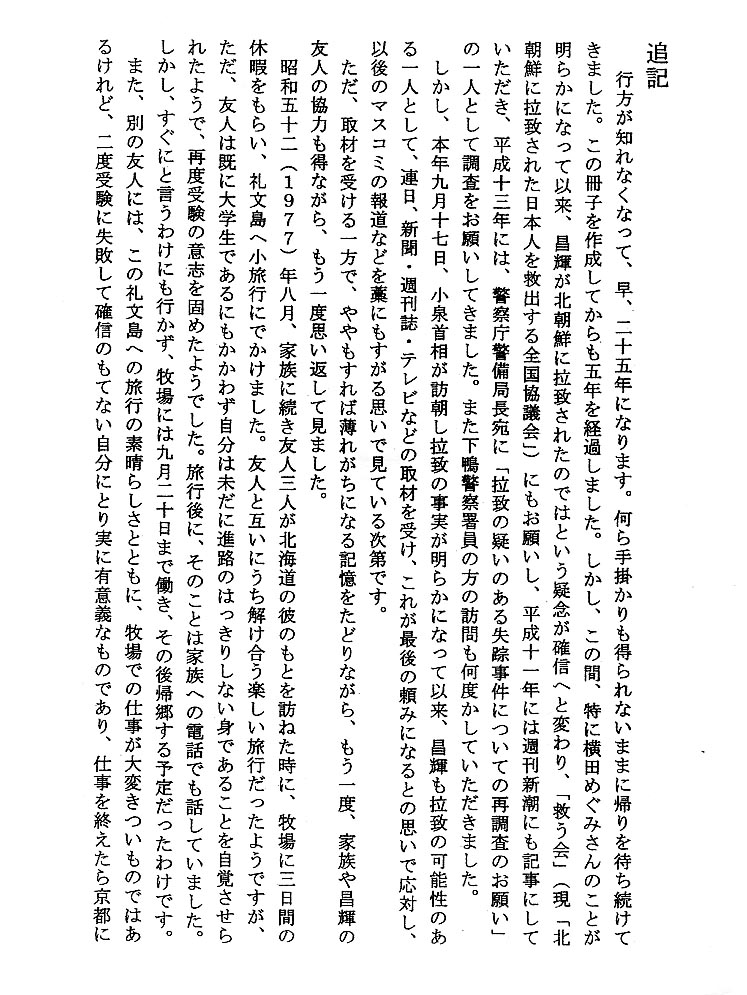 追記
行方が知れなくなって、早、二十五年になります。何ら手掛かりも得られないままに帰りを待ち続けて
きました。この冊子を作成してからも五年を経過しました。しかし、この間、特に横田めぐみさんのことが
明らかになって以来、昌輝が北朝鮮に拉致されたのではという疑念が確信へと変わり、「救う会」（現「北
朝鮮に拉致された日本人を救出する全国協議会」）にもお願いし、平成十一年には週刊新潮にも記事にして
いただき、平成十三年には、警察庁警備局長宛に「拉致の疑いのある失踪事件についての再調査のお願い」
の一人として調査をお願いしてきました。また下鴨警察署員の方の訪問も何度かしていただきました。
しかし、本年九月十七日、小泉首相が訪朝し拉致の事実が明らかになって以来、昌輝も拉致の可能性のあ
る一人として、連日、新聞・週刊誌・テレビなどの取材を受け、これが最後の頼みになるとの思いで応対し、
以後のマスコミの報道などを藁にもすがる思いで見ている次第です。
ただ、取材を受ける一方で、ややもすれば薄れがちになる記憶をたどりながら、もう一度、家族や昌輝の
友人の協力も得ながら、もう一度思い返して見ました。
昭和五十二（１９７７）年八月、家族に続き友人三人が北海道の彼のもとを訪ねた時に、牧場に三日間の
休暇をもらい、礼文島へ小旅行にでかけました。友人と互いにうち解け合う楽しい旅行だったようですが、
ただ、友人は既に大学生であるにもかかわず自分は未だに進路のはっきりしない身であることを自覚させら
れたようで、再度受験の意志を固めたようでした。旅行後に、そのことは家族への電話でも話していました。
しかし、すぐにと言うわけにも行かず、牧場には九月二十日まで働き、その後帰郷する予定だったわけです。
また、別の友人には、この礼文島への旅行の素晴らしさとともに、牧場での仕事が大変きついものではあ
るけれど、二度受験に失敗して確信のもてない自分にとり実に有意義なものであり、仕事を終えたら京都に